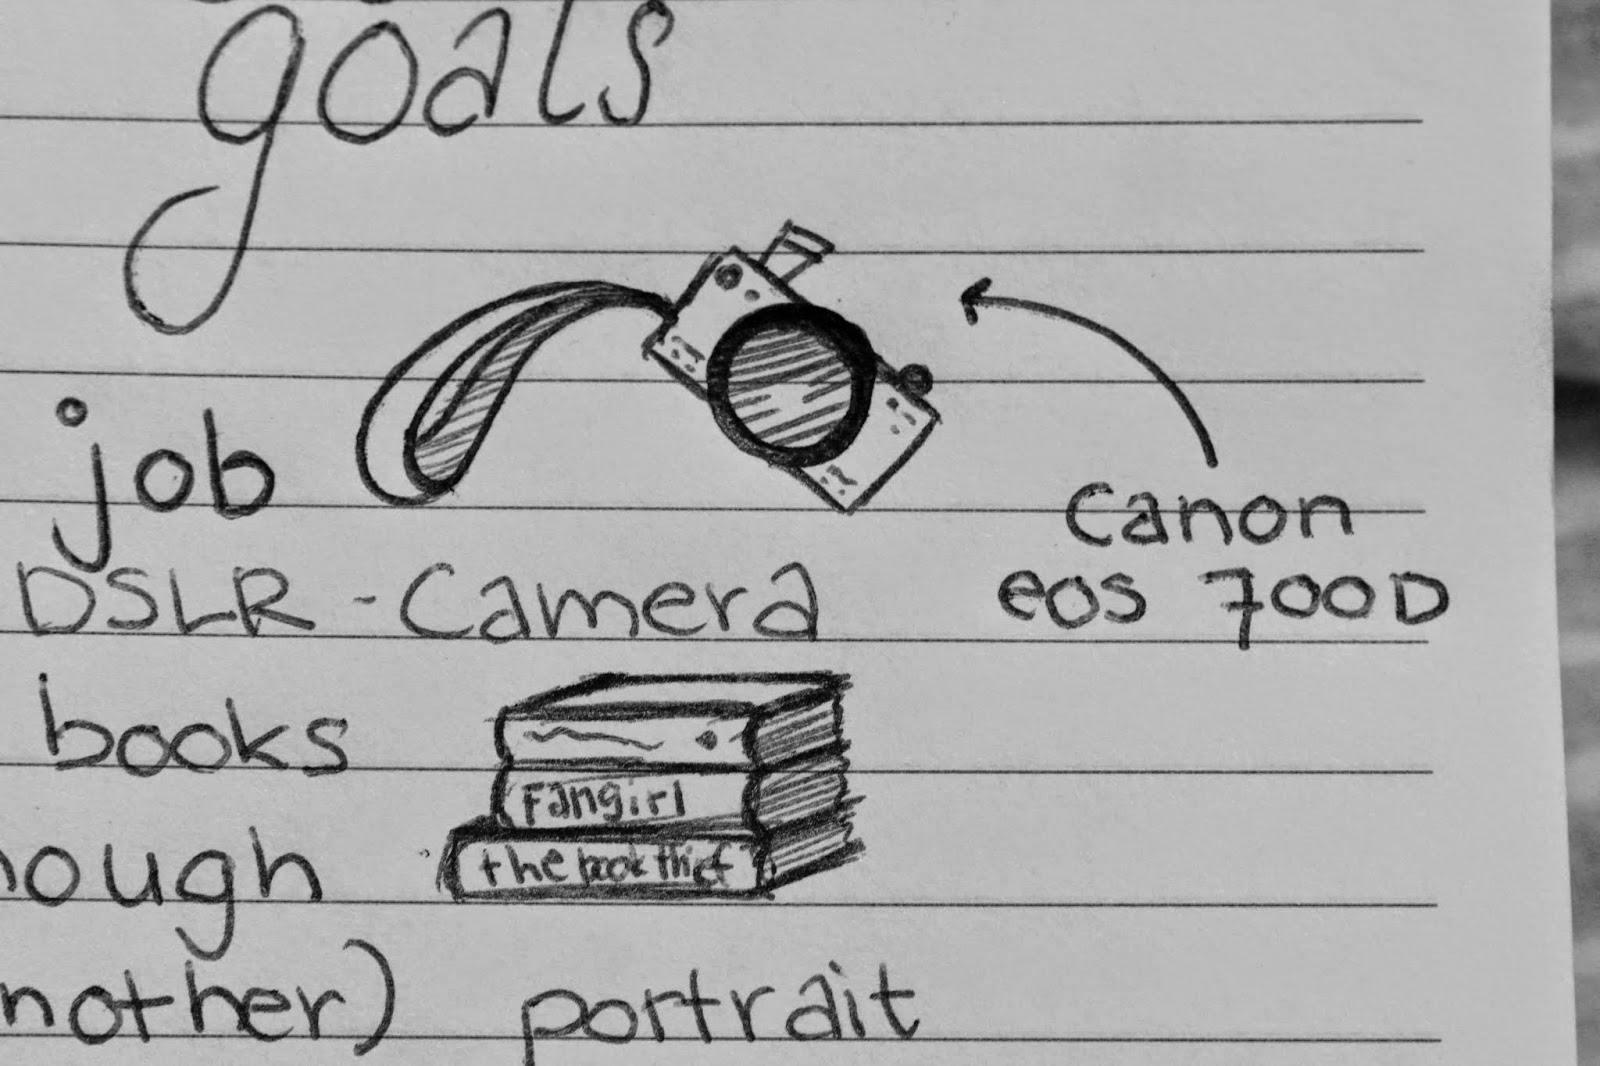 goals
job
DSLR - Camera
Canon
eos 700D
books
Fangirl
the book thief
nough
nother) portrait